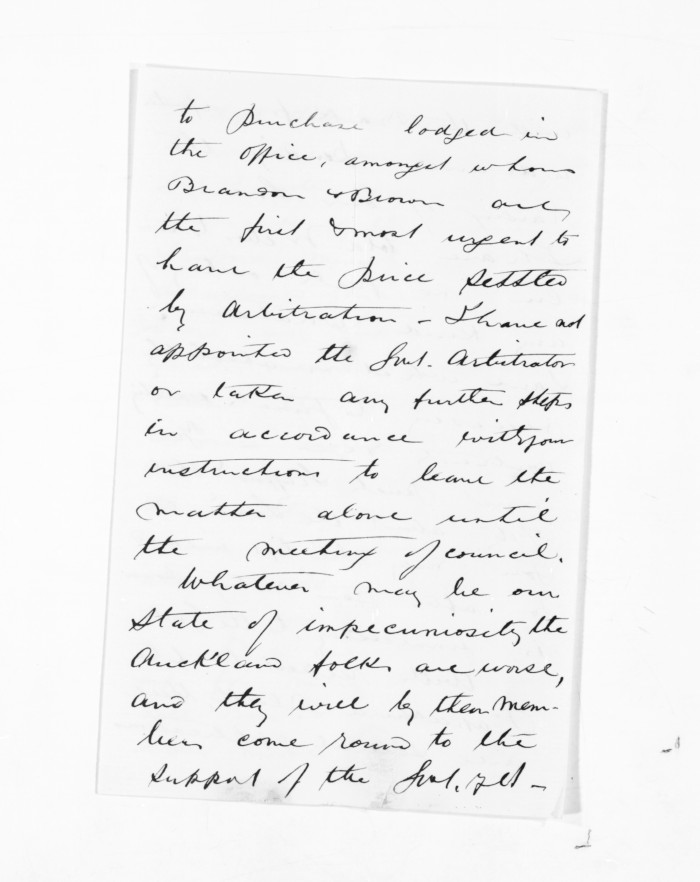 to purchase lodged in
the office, amongst whom
Brandon & Brown are
the first & most urgent to
have the price settled
by Arbitration - I have not
appointed the Govt. Arbitrator
or taken any further steps
in accordance with your
instructions to leave the
matter alone until
the meeting of council.
Whatever may be our
State of impecuniosity the
Auck'land folks are worse,
and they will by their Mem-
bers come round to the
support of the Govt. yet -